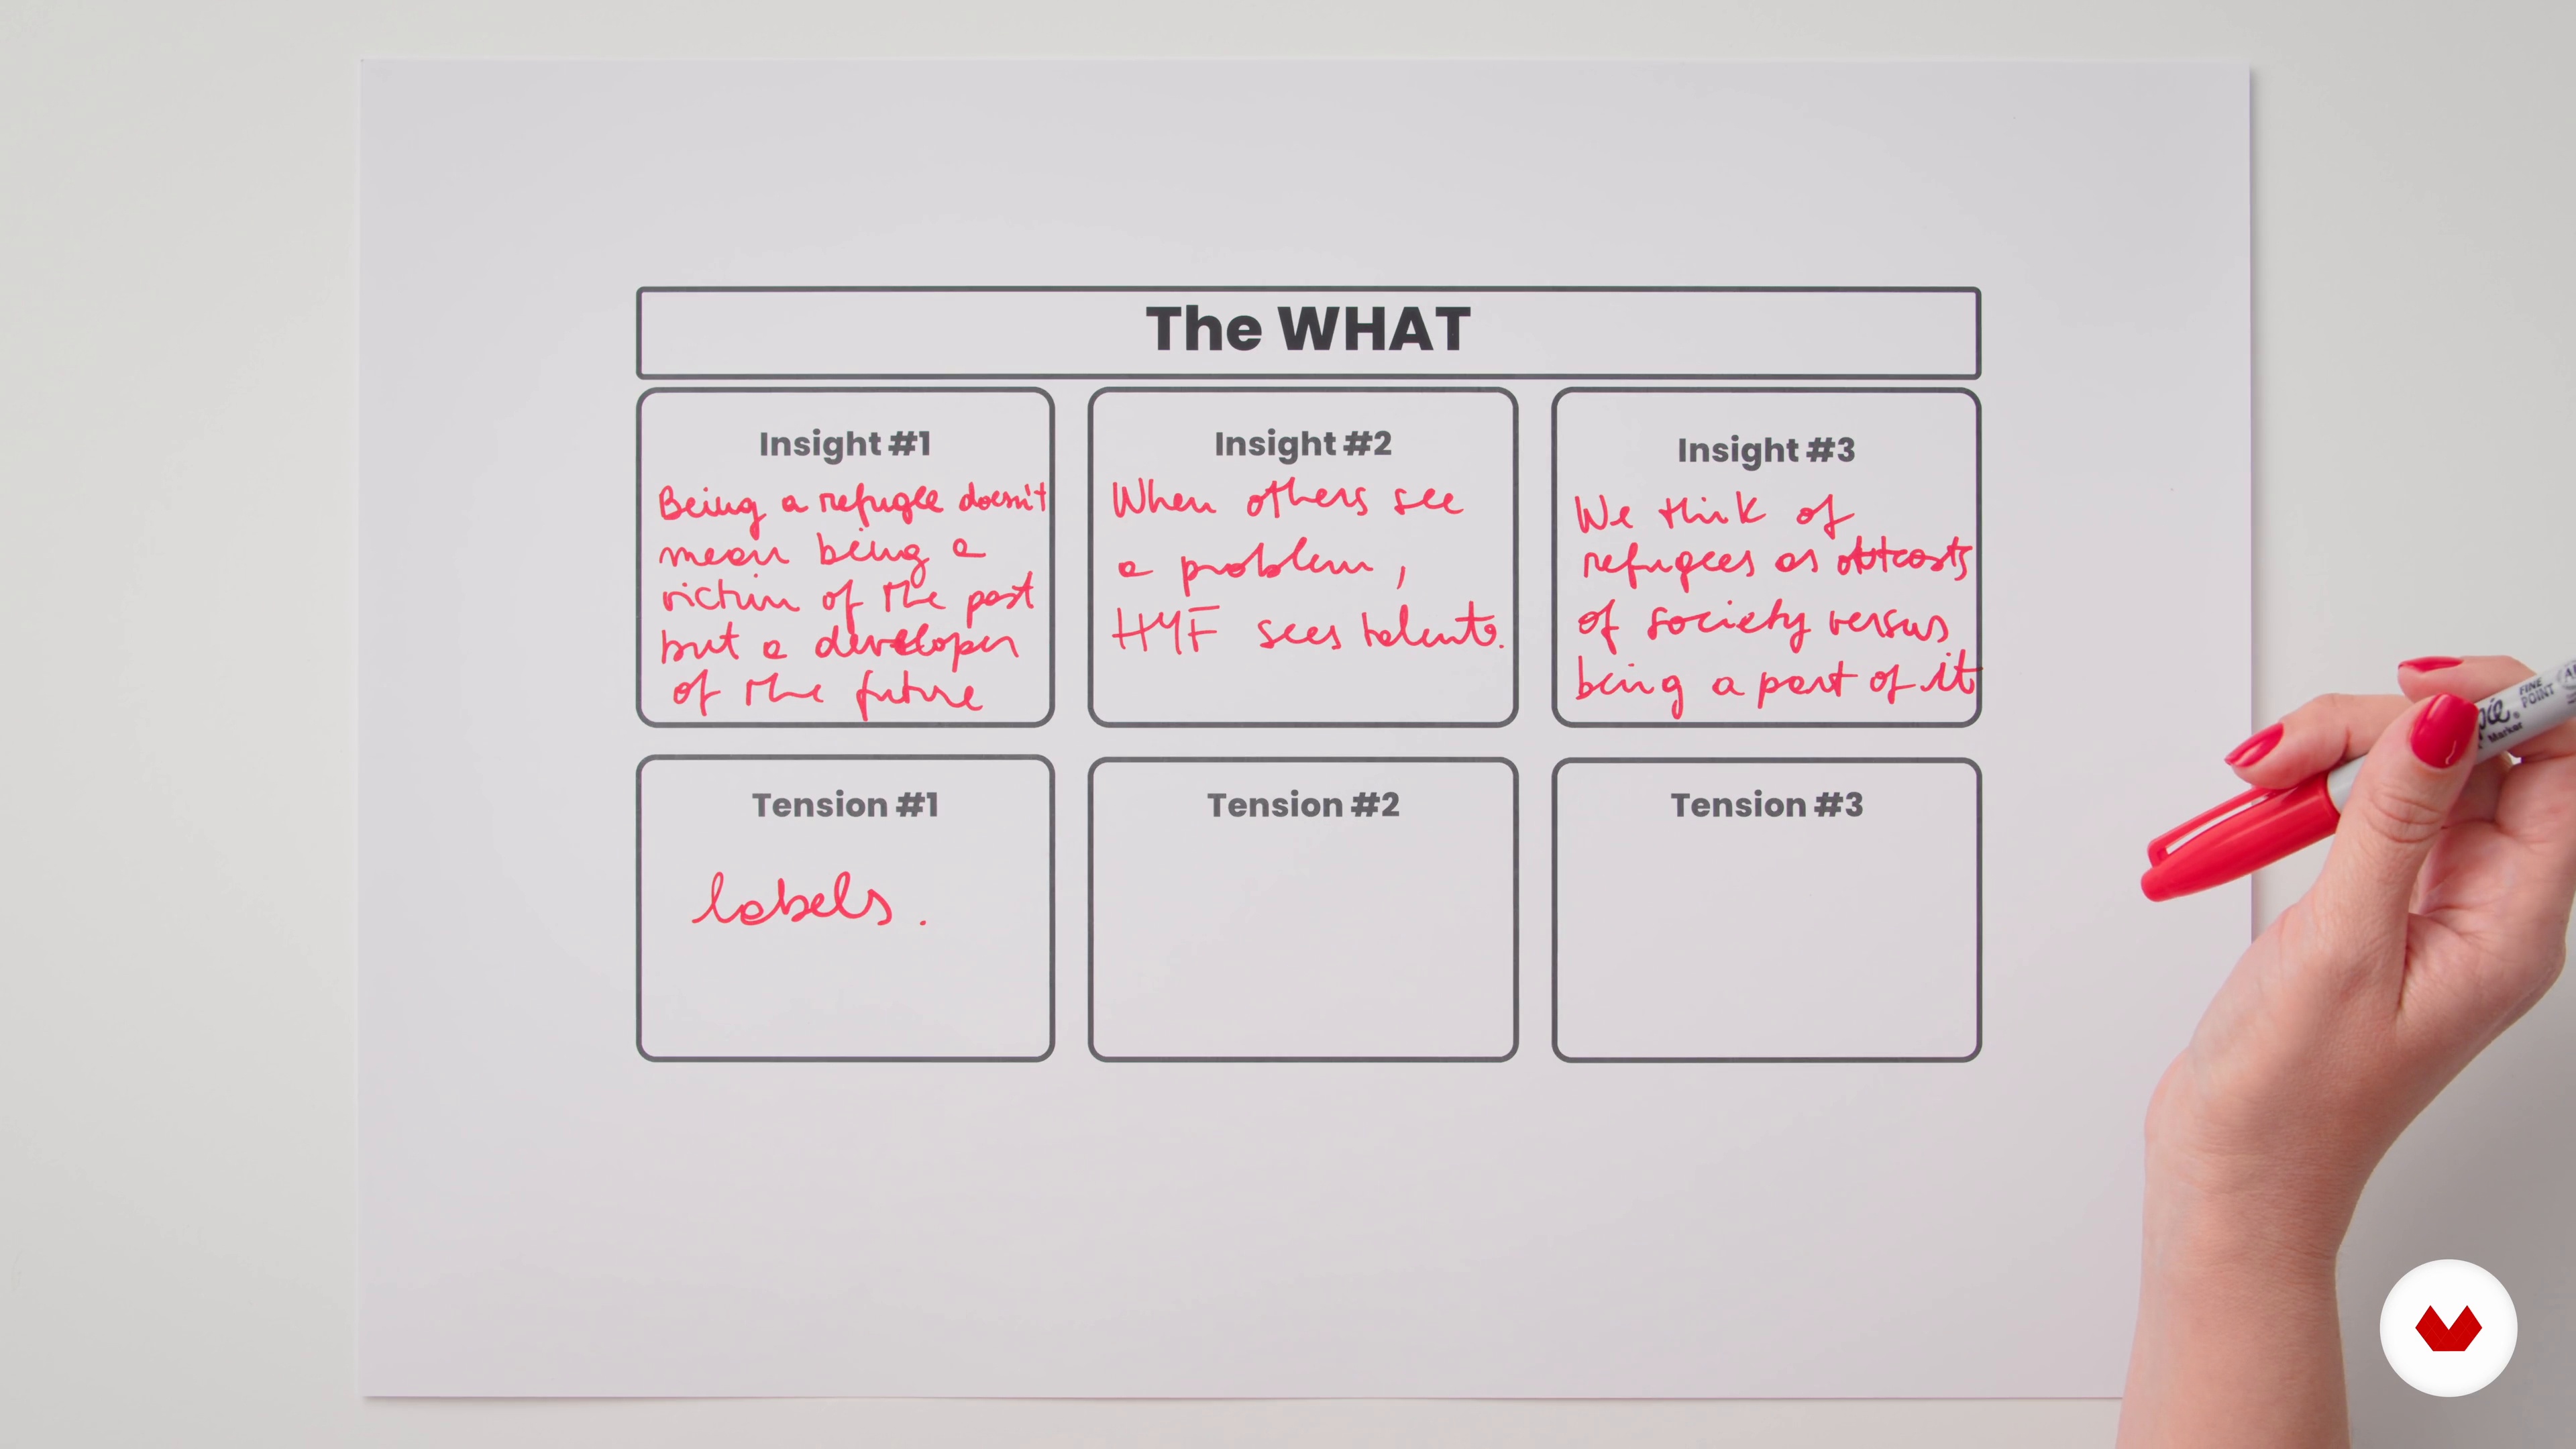 The WHAT
Insight #1
Being a refugee doesn't
mean being a
victim of the past
but a developer
of the future
Insight #2
When others see
a problem,
HYF sees talents.
Insight #3
We think of
refugees as outcasts
of society versus
being a part of it
Tension #1
labels.
Tension #2
Tension #3
FINE
POINT
Marker